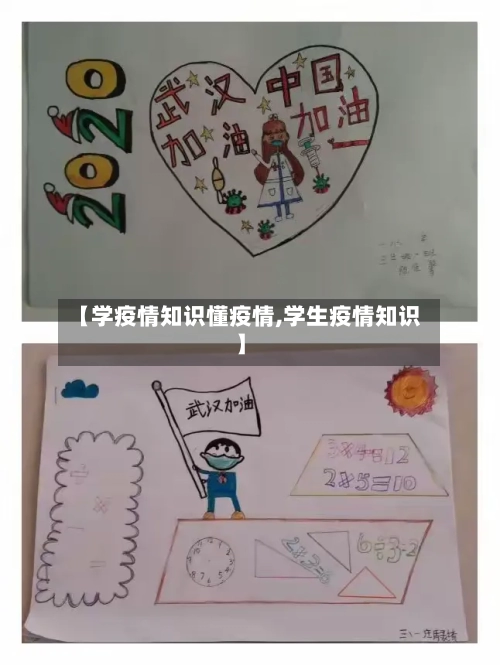 2020
武汉 中国
加油 加油
三年级一班
【学疫情知识懂疫情,学生疫情知识
】
武汉加油
3×4=12
2×5=10
÷
×
2+3=5
6÷3=2
三、一